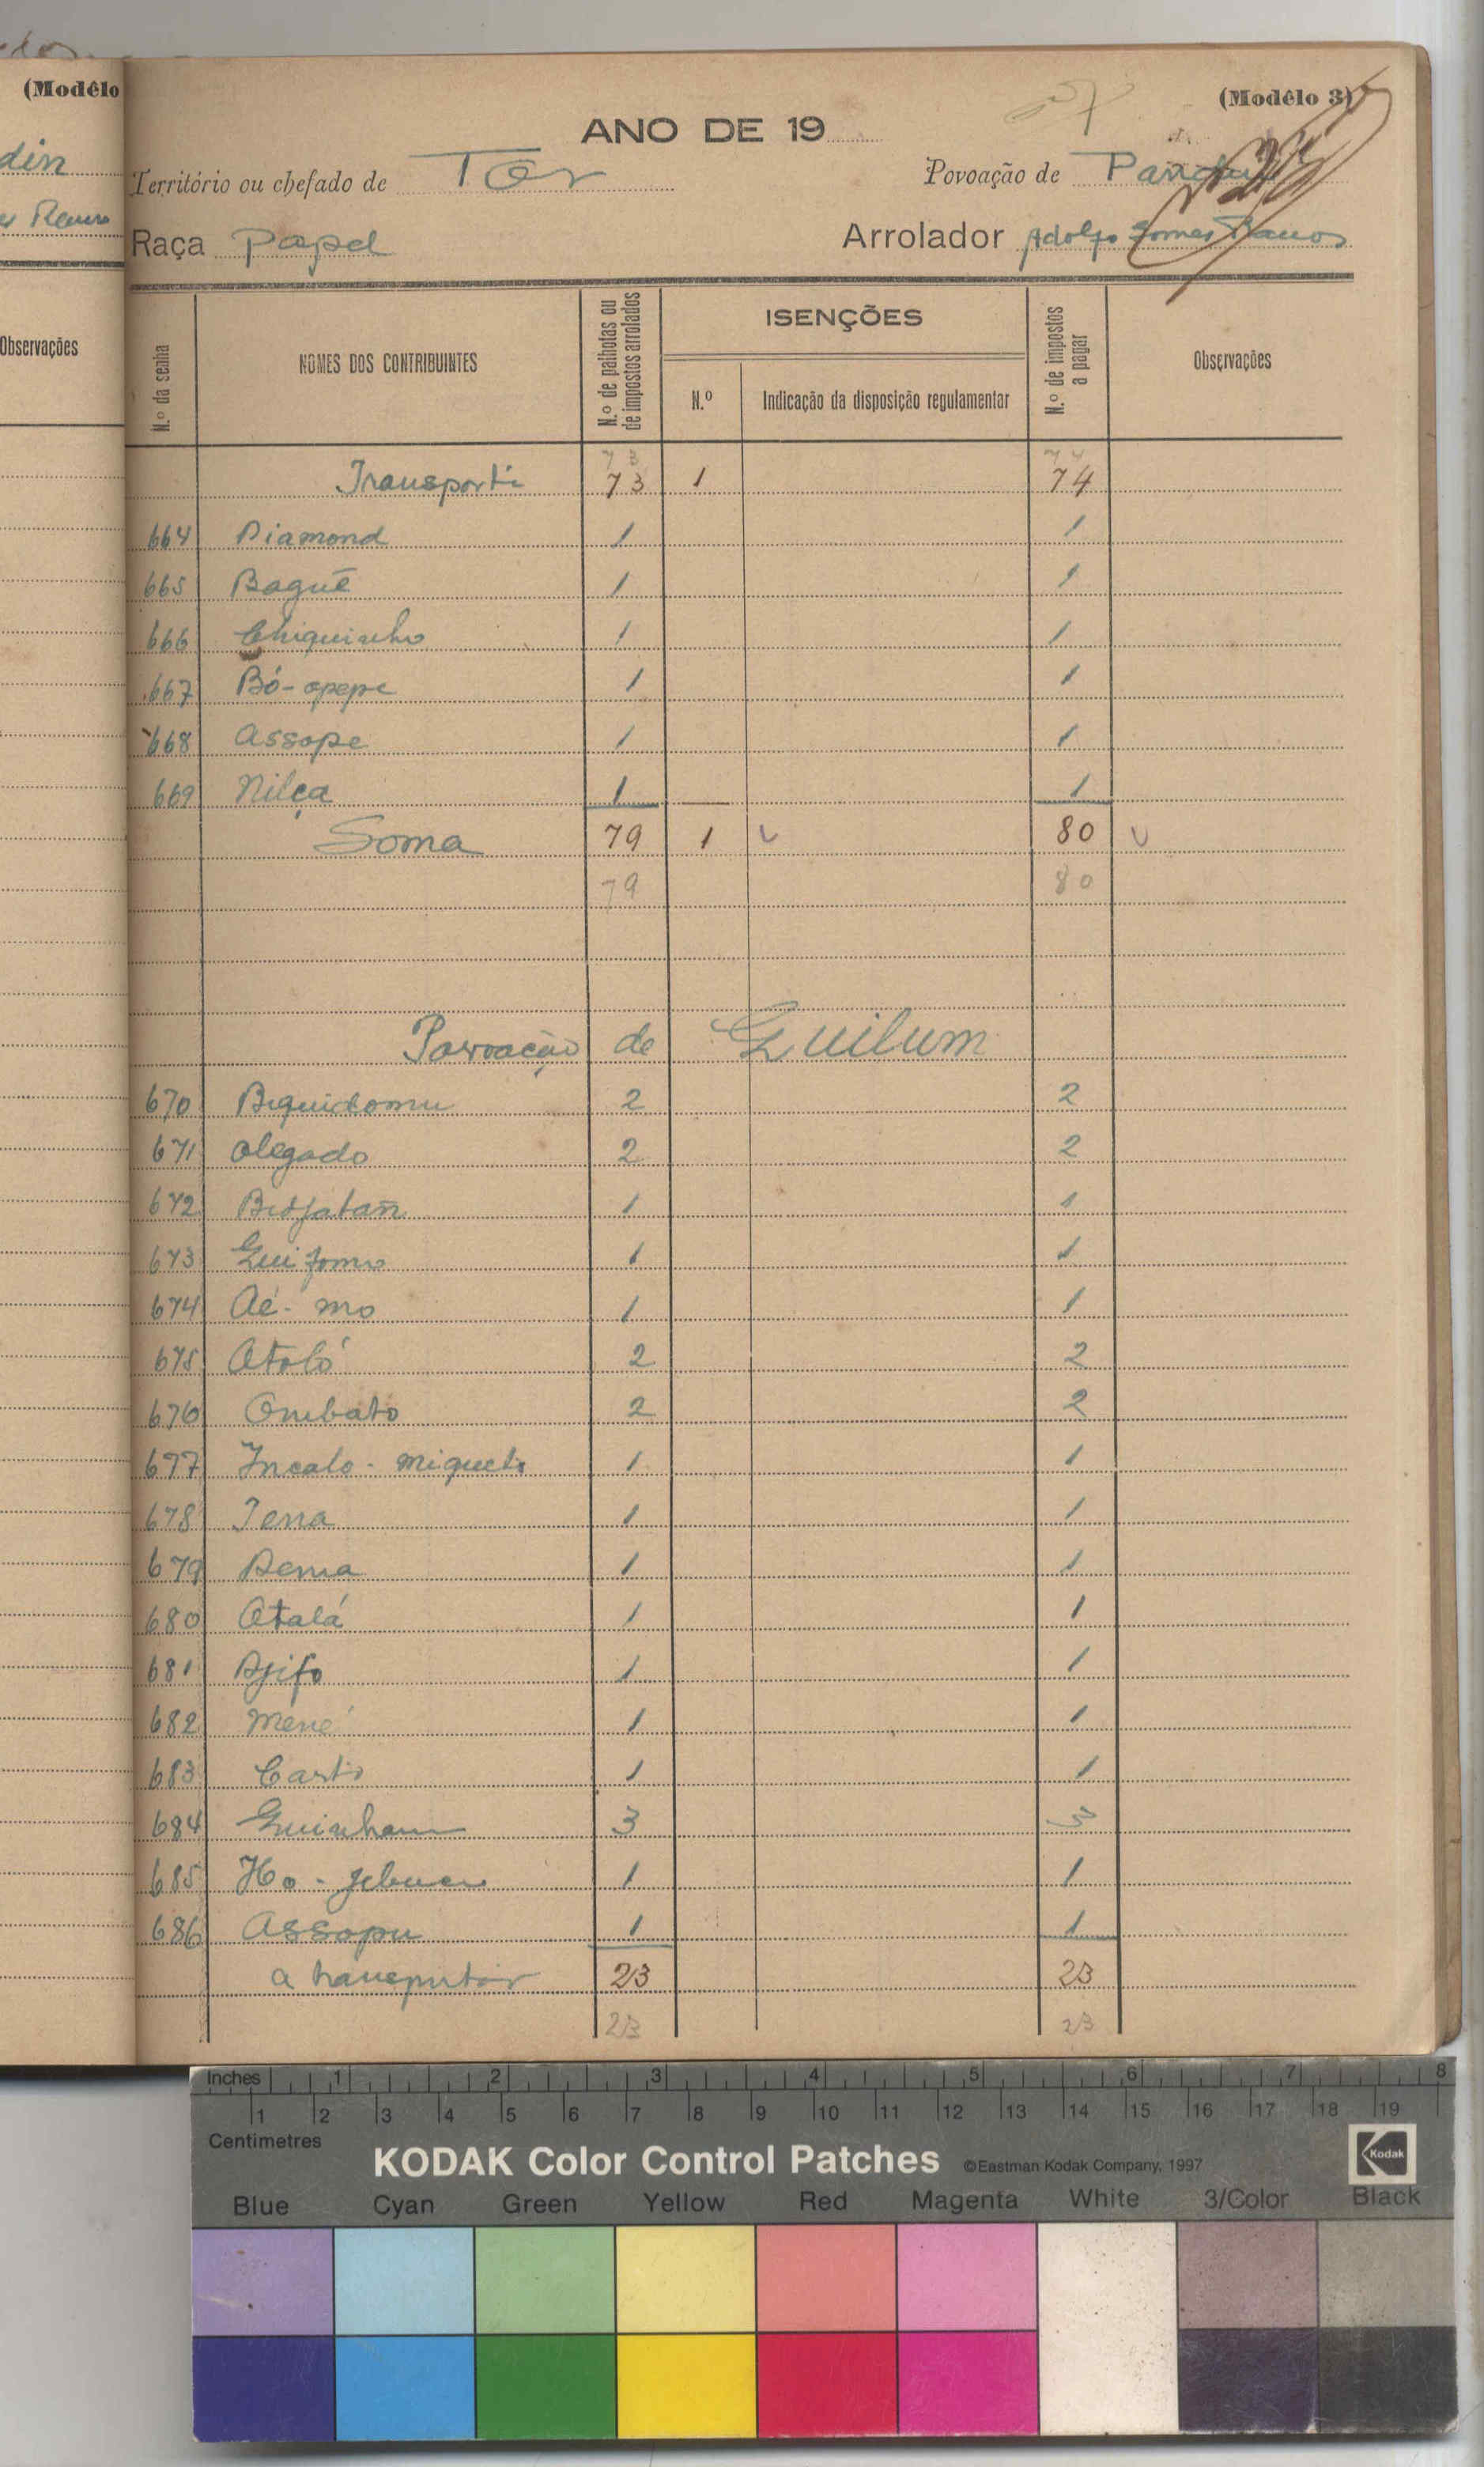 (Modêlo
din
Observações
(Modêlo 3)
ANO DE 19
Território ou chefado de Tôr
Povoação de
Raça Papel
Arrolador Adolfo Gomes Ramos
N.º da senha
NOMES DOS CONTRIBUINTES
N.º de palhotas ou de impostos arrolados
ISENÇÕES
N.º
Indicação da disposição regulamentar
N.º de impostos a pagar
Observações
73 74
Transporte 73 1 74
664 Diamond 1 1
665 Baguê 1 1
666 Chiquinho 1 1
667 Bó-opepe 1 1
668 Assope 1 1
669 Nilça 1 1
Soma 79 1 80
79 80
Povoação de Guilum
670 2 2
671 Olegado 2 2
672 1 1
673 1 1
674 Aé-mo 1 1
675 Atoló 2 2
676 Ombato 2 2
677 Incalo-miguel 1 1
678 1 1
679 1 1
680 Atalá 1 1
681 Djifo 1 1
682 Mené 1 1
683 1 1
684 Guinham 3 3
685 1 1
686 Assopu 1 1
a transportar 23 23
23 23
Inches 1 2 3 4 5 6 7 8
1 2 3 4 5 6 7 8 9 10 11 12 13 14 15 16 17 18 19
Centimetres
KODAK Color Control Patches ©Eastman Kodak Company, 1997 Kodak
Blue Cyan Green Yellow Red Magenta White 3/Color Black